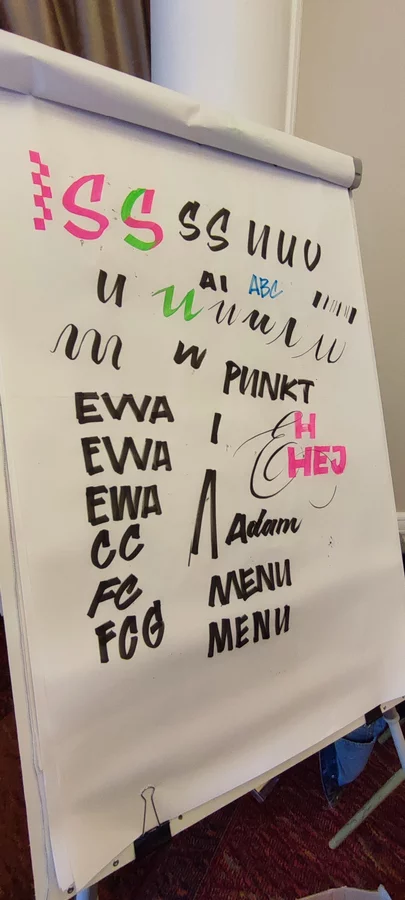 SS SS UUU
U AI ABC
U u u u u u
m w
PUNKT
EWA I E H
EWA HEJ
EWA
Adam
CC
FC MENU
FCG MENU